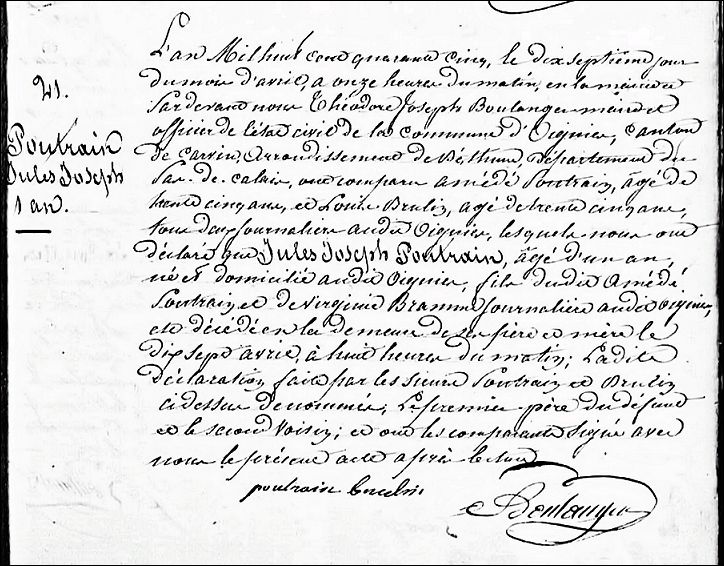 21.
Poutrain
Jules Joseph
1 an.
L'an Mil huit cent quarante cinq, le dix septième jour
du mois d'avril, a onze heures du matin, en la mairie et
Pardevant nous Théodore Joseph Boulanger maire et
officier de l'état civil de la commune d'Oignies, canton
de Carvin, Arrondissement de Béthune, Département du
Pas-de-calais, ont comparu amédé Poutrain, âgé de
trente cinq ans, et Louis Brulin, agé de trente cinq ans,
tous deux journaliers audit Oignies, lesquels nous ont
déclaré que Jules Joseph Poutrain, âgé d'un an,
né et domicilié audit Oignies, fils dudit Amédé
Poutrain et de Virginie Bramme journalière audit Oignies,
est décédé en la demeure de ses père et mère le
dix sept avril, à huit heures du matin; Ladite
déclaration faite par les sieurs Poutrain et Brulin
cidessus dénommés, Le premier père du défunt
et le second Voisin; et ont les comparants Signé avec
nous le présent acte après lecture
poutrain brulin
Boulanger